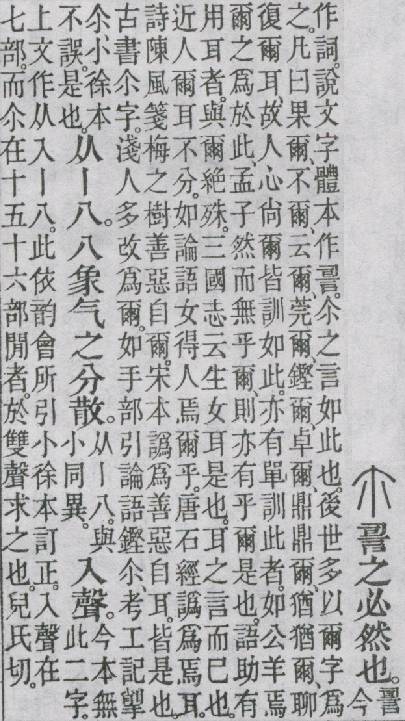 尒 䛐之必然也。䛐今
作詞。說文字體本作䛐。尒之言如此也。後世多以爾字爲
之。凡曰果爾、不爾、云爾、莞爾、鏗爾、卓爾、鼎鼎爾、猶猶爾、聊
復爾耳、故人心尙爾皆訓如此。亦有單訓此者。如公羊焉
爾之爲於此、孟子然而無乎爾、則亦有乎爾是也。語助有
用耳者。與爾絶殊。三國志云生女耳是也。耳之言而已也。
近人爾耳不分。如論語女得人焉爾乎。唐石經譌爲焉耳。
詩陳風箋梅之樹善惡自爾。宋本譌爲善惡自耳。皆是也。
古書尒字。淺人多改爲爾。如手部引論語鏗尒、考工記掔
尒、小徐本不誤。是也。从丨八。八象气之分散。从丨八。與小同異。入聲。今本無此二字。
上文作从入丨八。此依韵會所引小徐本訂正。入聲在
七部。而尒在十五十六部閒者。於雙聲求之也。兒氏切。